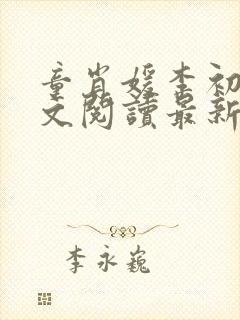 童肖媛李初
文閱讀最新
李永巍